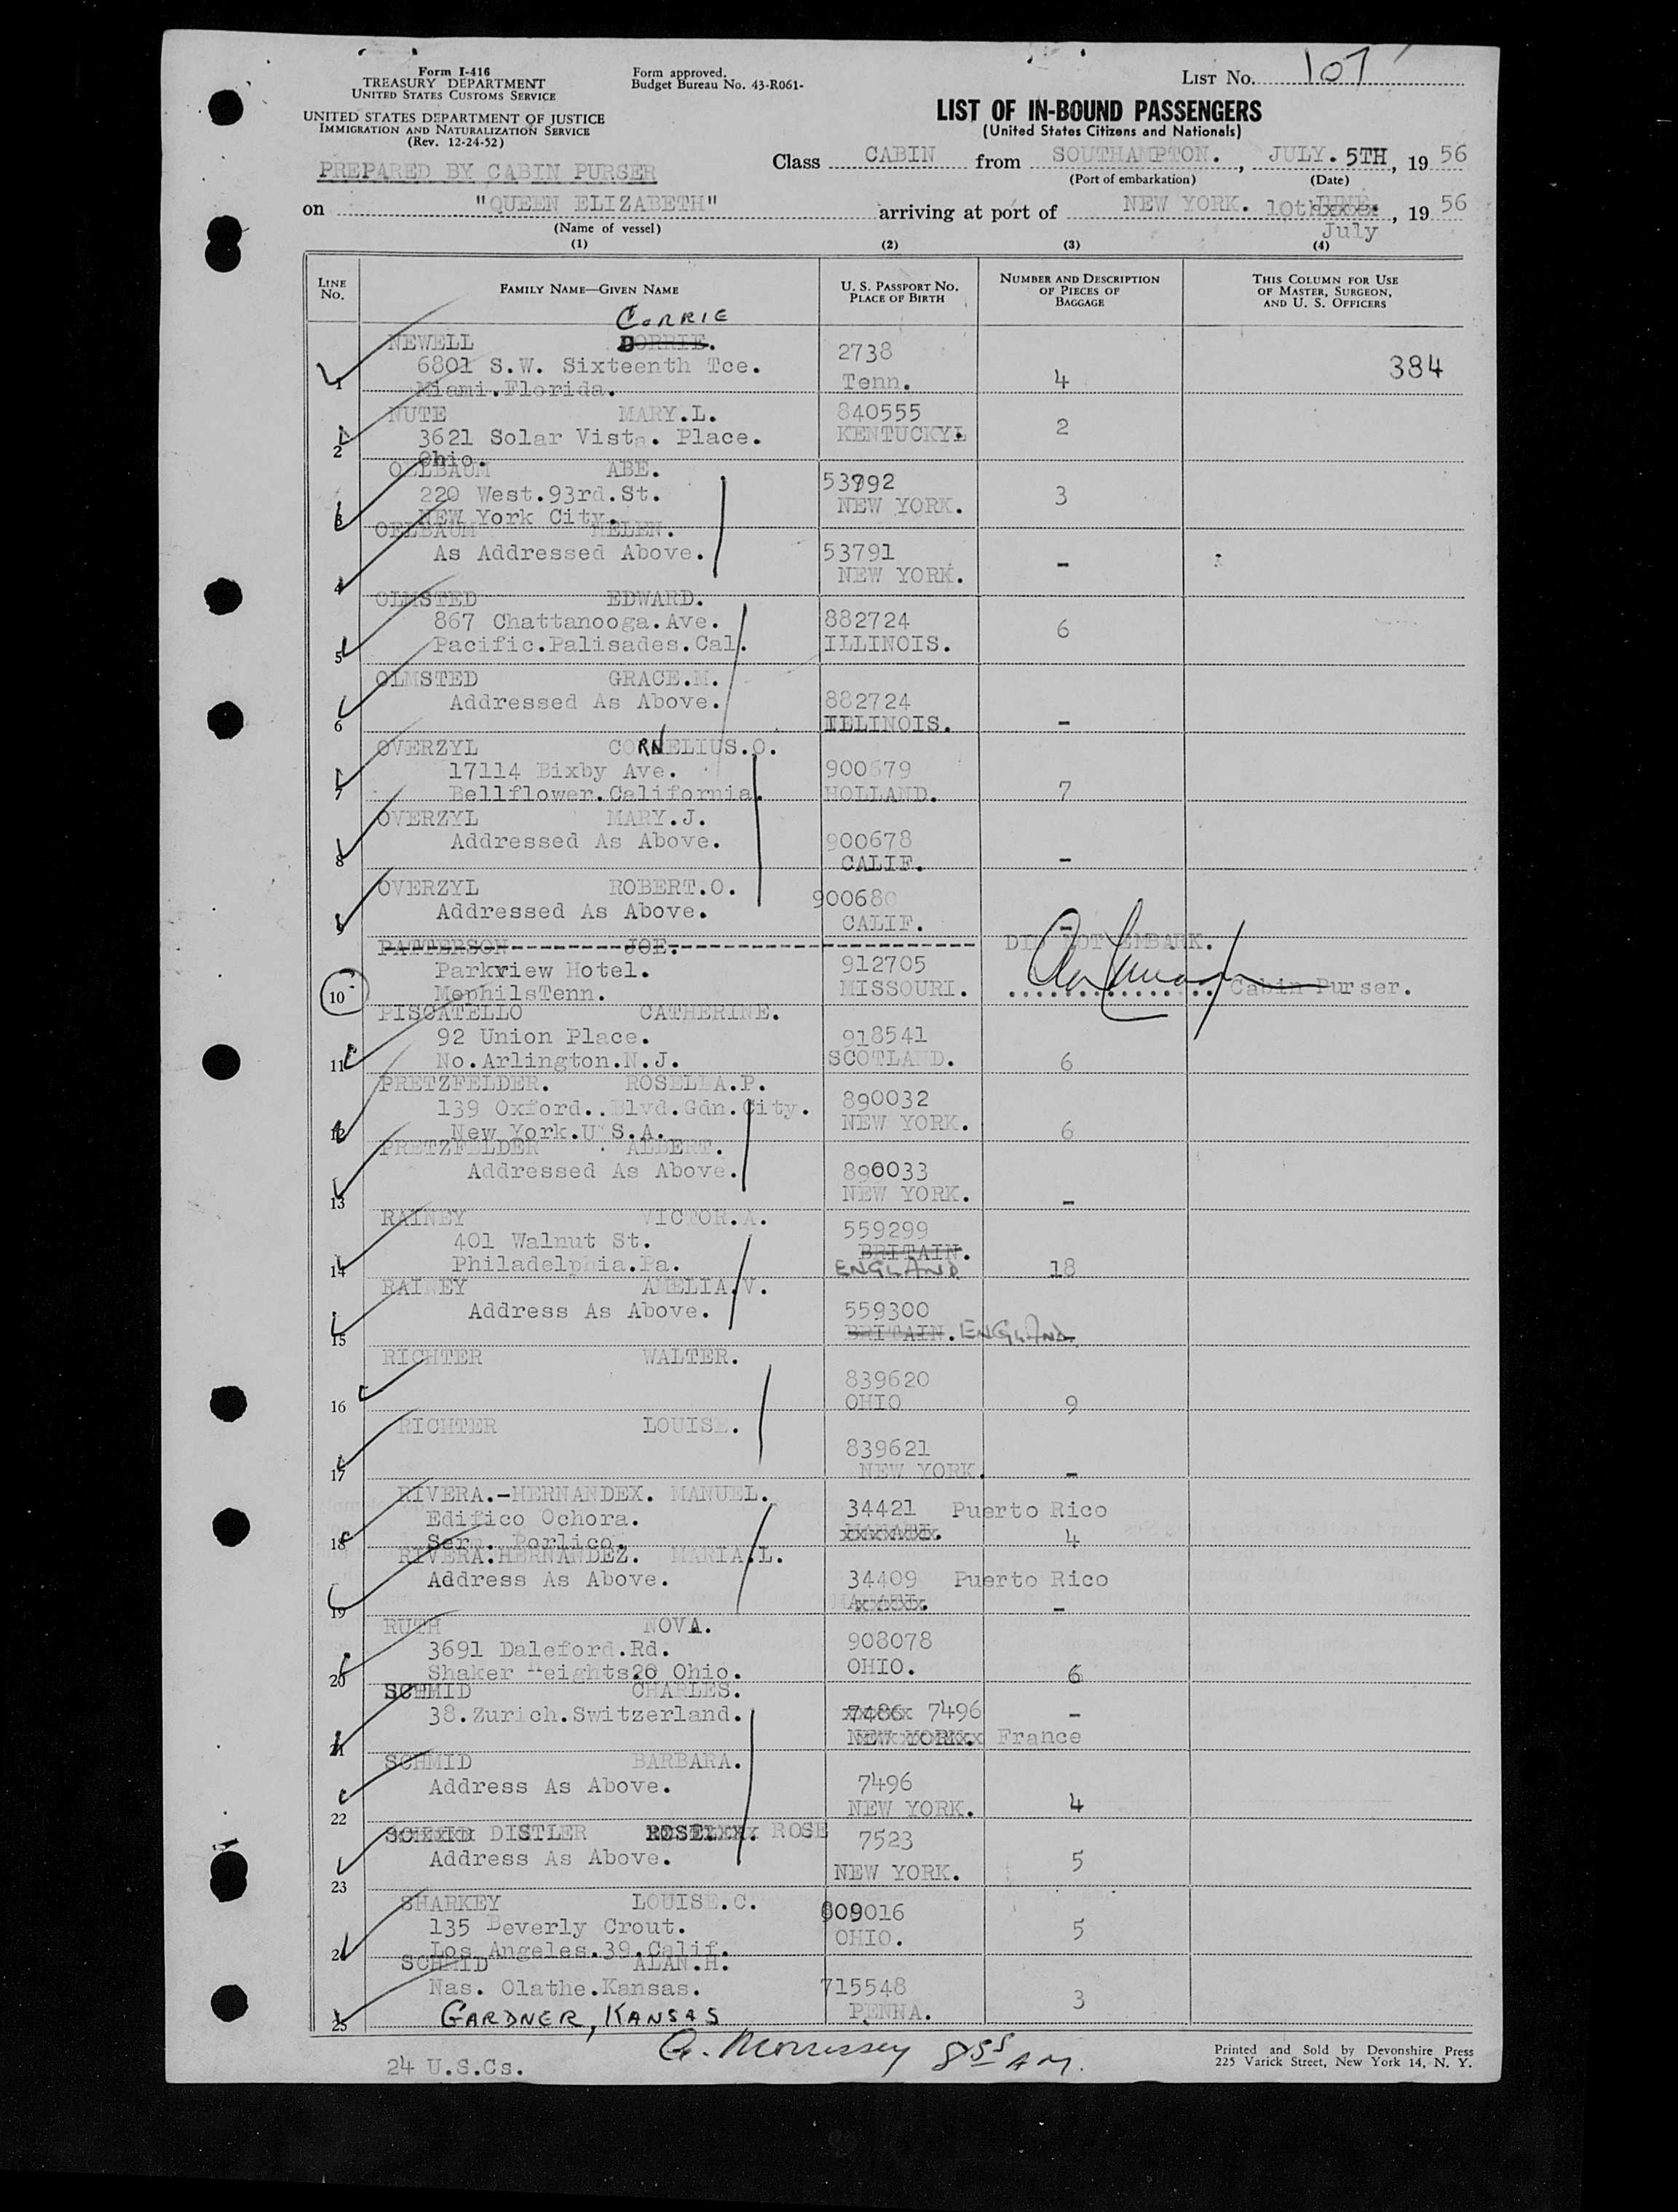 Form I-416
TREASURY DEPARTMENT
UNITED STATES CUSTOMS SERVICE
UNITED STATES DEPARTMENT OF JUSTICE
IMMIGRATION AND NATURALIZATION SERVICE
(Rev. 12-24-52)
Form approved.
Budget Bureau No. 43-R061-
LIST NO. 107
LIST OF IN-BOUND PASSENGERS
(United States Citizens and Nationals)
PREPARED BY CABIN PURSER
Class CABIN from SOUTHAMPTON. , JULY. 5TH, 19 56
(Port of embarkation) (Date)
on "QUEEN ELIZABETH" arriving at port of NEW YORK. 10th , 19 56
July
(Name of vessel)
(1) (2) (3) (4)
LINE NO.
FAMILY NAME—GIVEN NAME
U. S. PASSPORT NO.
PLACE OF BIRTH
NUMBER AND DESCRIPTION
OF PIECES OF
BAGGAGE
THIS COLUMN FOR USE
OF MASTER, SURGEON,
AND U. S. OFFICERS
CORRIE
NEWELL DORRIE.
6801 S.W. Sixteenth Tce. 2738 384
1 Miami.Florida. Tenn. 4
NUTE MARY.L. 840555
2 3621 Solar Vista. Place. KENTUCKY. 2
Ohio.
OELBAUM ABE. 53792
220 West.93rd.St. NEW YORK. 3
3 NEW York City.
OELBAUM HELEN.
As Addressed Above. 53791 -
4 NEW YORK.
OLMSTED EDWARD.
867 Chattanooga.Ave. 882724 6
5 Pacific.Palisades.Cal. ILLINOIS.
OLMSTED GRACE.M.
Addressed As Above. 882724
6 ILLINOIS. -
OVERZYL CORNELIUS.O.
17114 Bixby Ave. 900679
7 Bellflower.California. HOLLAND. 7
OVERZYL MARY.J.
Addressed As Above. 900678
8 CALIF. -
OVERZYL ROBERT.O. 900680
Addressed As Above.
9 CALIF. -
PATTERSON JOE. DID NOT EMBARK.
Parkview Hotel. 912705
10 MephilsTenn. MISSOURI. Cabin Purser.
PISCATELLO CATHERINE.
92 Union Place. 918541
11 No.Arlington.N.J. SCOTLAND. 6
PRETZFELDER. ROSELLA.P.
139 Oxford..Blvd.Gdn.City. 890032
12 New York.U S.A. NEW YORK. 6
PRETZFELDER ALBERT.
Addressed As Above. 890033
13 NEW YORK. -
RAINEY VICTOR.A. 559299
401 Walnut St. BRITAIN.
14 Philadelphia.Pa. ENGLAND 18
RAINEY AMELIA.V.
Address As Above. 559300
15 BRITAIN. ENGLAND
RICHTER WALTER.
839620
16 OHIO 9
RICHTER LOUISE.
839621
17 NEW YORK. -
RIVERA.-HERNANDEX. MANUEL.
Edifico Ochora. 34421 Puerto Rico
18 Porlico. 4
RIVERA.HERNANDEZ. MARIA.L.
Address As Above. 34409 Puerto Rico
19 -
RUTH NOVA.
3691 Daleford.Rd. 908078
20 Shaker Heights20 Ohio. OHIO. 6
SCHMID CHARLES.
38.Zurich.Switzerland. 7486 7496 -
21 NEW YORK. France
SCHMID BARBARA.
Address As Above. 7496
22 NEW YORK. 4
SCHMID DISTLER ROSE
Address As Above. 7523
23 NEW YORK. 5
SHARKEY LOUISE.C. 809016
135 Beverly Crout. OHIO. 5
24 Los Angeles.39.Calif.
SCHMID ALAN.H.
Nas. Olathe.Kansas. 715548
25 GARDNER, KANSAS PENNA. 3
24 U.S.Cs.
G. Morrissey 8 55 AM.
Printed and Sold by Devonshire Press
225 Varick Street, New York 14, N. Y.